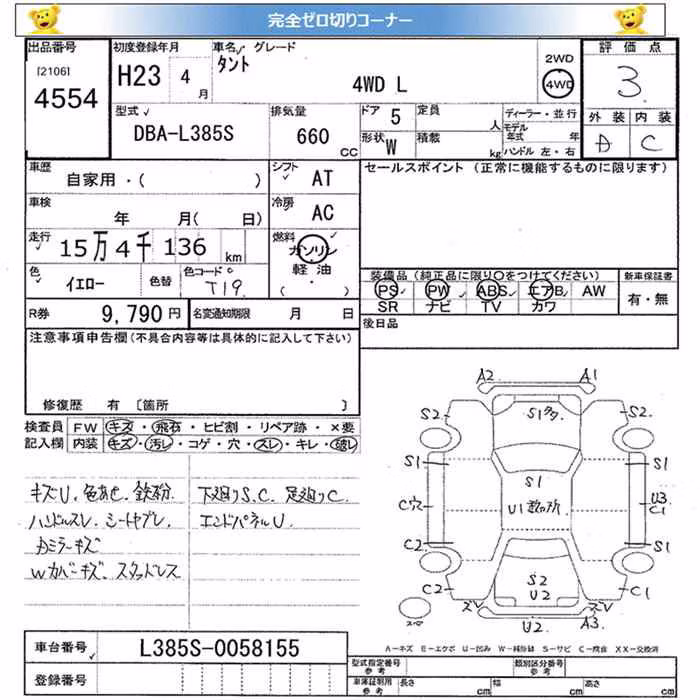 完全ゼロ切りコーナー
出品番号 初度登録年月 車名 グレード 評価点
[2106] H23 4月 タント 4WD L 2WD 4WD 3
4554
型式 排気量 ドア 定員 ディーラー・並行 外装 内装
DBA-L385S 660 CC 5 人 モデル年式 年 C
形状 W 積載 kg ハンドル 左・右
車歴 シフト セールスポイント (正常に機能するものに限ります)
自家用・( ) AT
車検 冷房
年 月( 日) AC
走行 燃料
15万4千136 km ガソリン
軽油
( ・ )
色 色コード 装備品(純正品に限り○をつけてください) 新車保証書
イエロー 色替 T19 PS PW ABS エアB AW 有・無
SR ナビ TV カワ
R券 9,790円 名変通知期限 月 日 後日品
注意事項申告欄(不具合内容等は具体的に記入して下さい)
修復歴 有 〔箇所 〕
検査員 FW キズ・飛石・ヒビ割・リペア跡・×要
記入欄 内装 キズ・汚レ・コゲ・穴・スレ・キレ・破レ
キズU. 色あせ. 鉄粉. 下廻りS.C. 足廻りC.
ハンドルスレ. シートヤブレ. エンドパネルU.
Dミラーキズ
Wカバーキズ. スタッドレス
A2 A1
S2 S1 S2
S1 S1 S1
C穴 U1 数ヶ所 U3
C1
C2 S1
C2 S2 C1
U2
U2 A3
A-キズ E-エクボ U-凹み W-補修跡 S-サビ C-腐食 XX-交換済
車台番号 L385S-0058155
登録番号
型式指定番号 参考 類別区分番号 参考
車庫証明用 参考 長さ cm 幅 cm 高さ cm